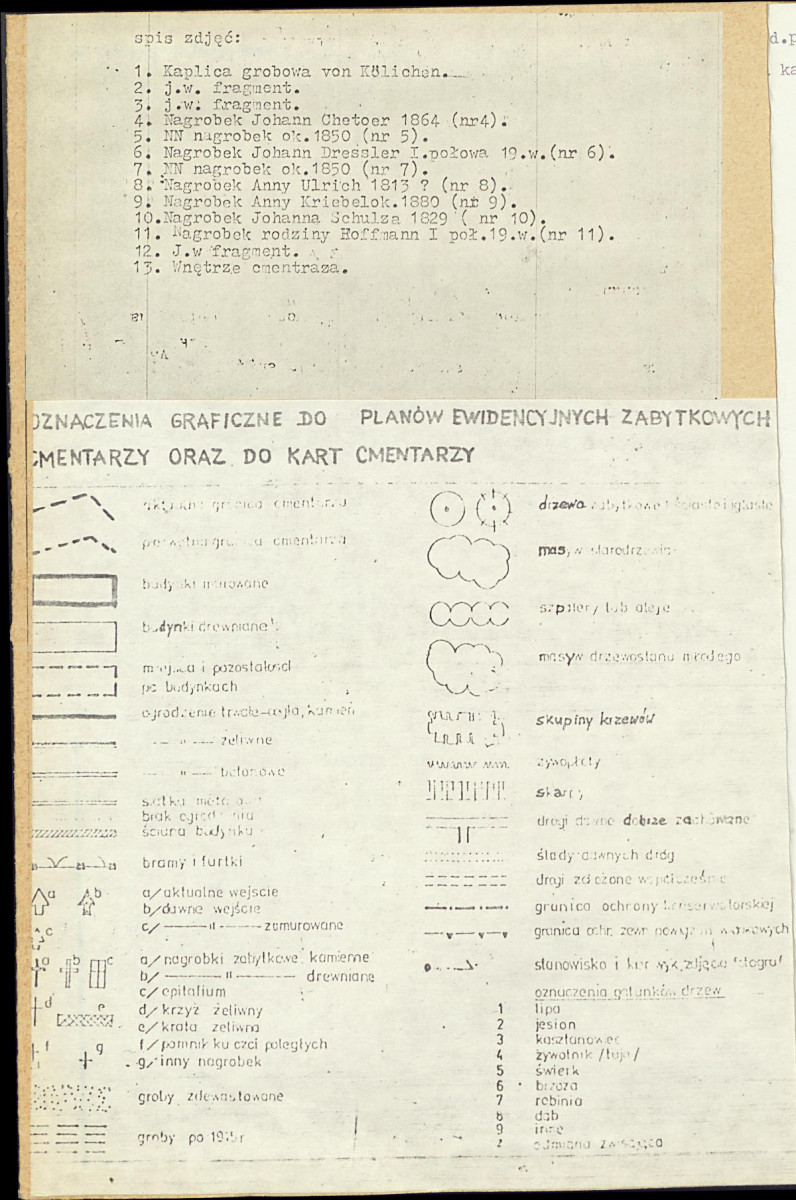 spis zdjęć:
1. Kaplica grobowa von Kölichen.
2. j.w. fragment.
3. j.w. fragment.
4. Nagrobek Johann Chetoer 1864 (nr4).
5. NN nagrobek ok.1850 (nr 5).
6. Nagrobek Johann Dressler I.połowa 19.w.(nr 6).
7. NN nagrobek ok.1850 (nr 7).
8. Nagrobek Anny Ulrich 1813 ? (nr 8).
9. Nagrobek Anny Kriebelok.1880 (nr 9).
10.Nagrobek Johanna Schulza 1829 ( nr 10).
11. Nagrobek rodziny Hoffmann I poł.19.w.(nr 11).
12. J.w fragment.
13. Wnętrze cmentraza.
d.p
ka
OZNACZENIA GRAFICZNE DO PLANÓW EWIDENCYJNYCH ZABYTKOWYCH
CMENTARZY ORAZ DO KART CMENTARZY
aktualna granica cmentarza
pierwotna granica cmentarza
budynki murowane
budynki drewniane
miejsca i pozostałości
po budynkach
ogrodzenie trwałe-cegła, kamień
— " — żeliwne
— " — betonowe
siatka metalowa
brak ogrodzenia
ściana budynku
bramy i furtki
a b a/aktualne wejście
b/dawne wejście
c c/ — " — zamurowane
a b c a/nagrobki zabytkowe kamienne
b/ — " — drewniane
c/epitafium
d e d/krzyż żeliwny
e/krata żeliwna
f g f/pomnik ku czci poległych
g/inny nagrobek
groby zdewastowane
groby po 1945r
drzewa zabytkowe liściaste i iglaste
masyw starodrzewia
szpalery lub aleje
masyw drzewostanu młodego
skupiny krzewów
żywopłoty
skarpy
drogi dawne dobrze zachowane
ślady dawnych dróg
drogi założone współcześnie
granica ochrony konserwatorskiej
granica ochr. zewn.
stanowisko i kier. wyk. zdjęcia fotograf
oznaczenia gatunków drzew
1 lipa
2 jesion
3 kasztanowiec
4 żywotnik /tuja/
5 świerk
6 brzoza
7 robinia
8 dąb
9 inne
odmiana zwisająca